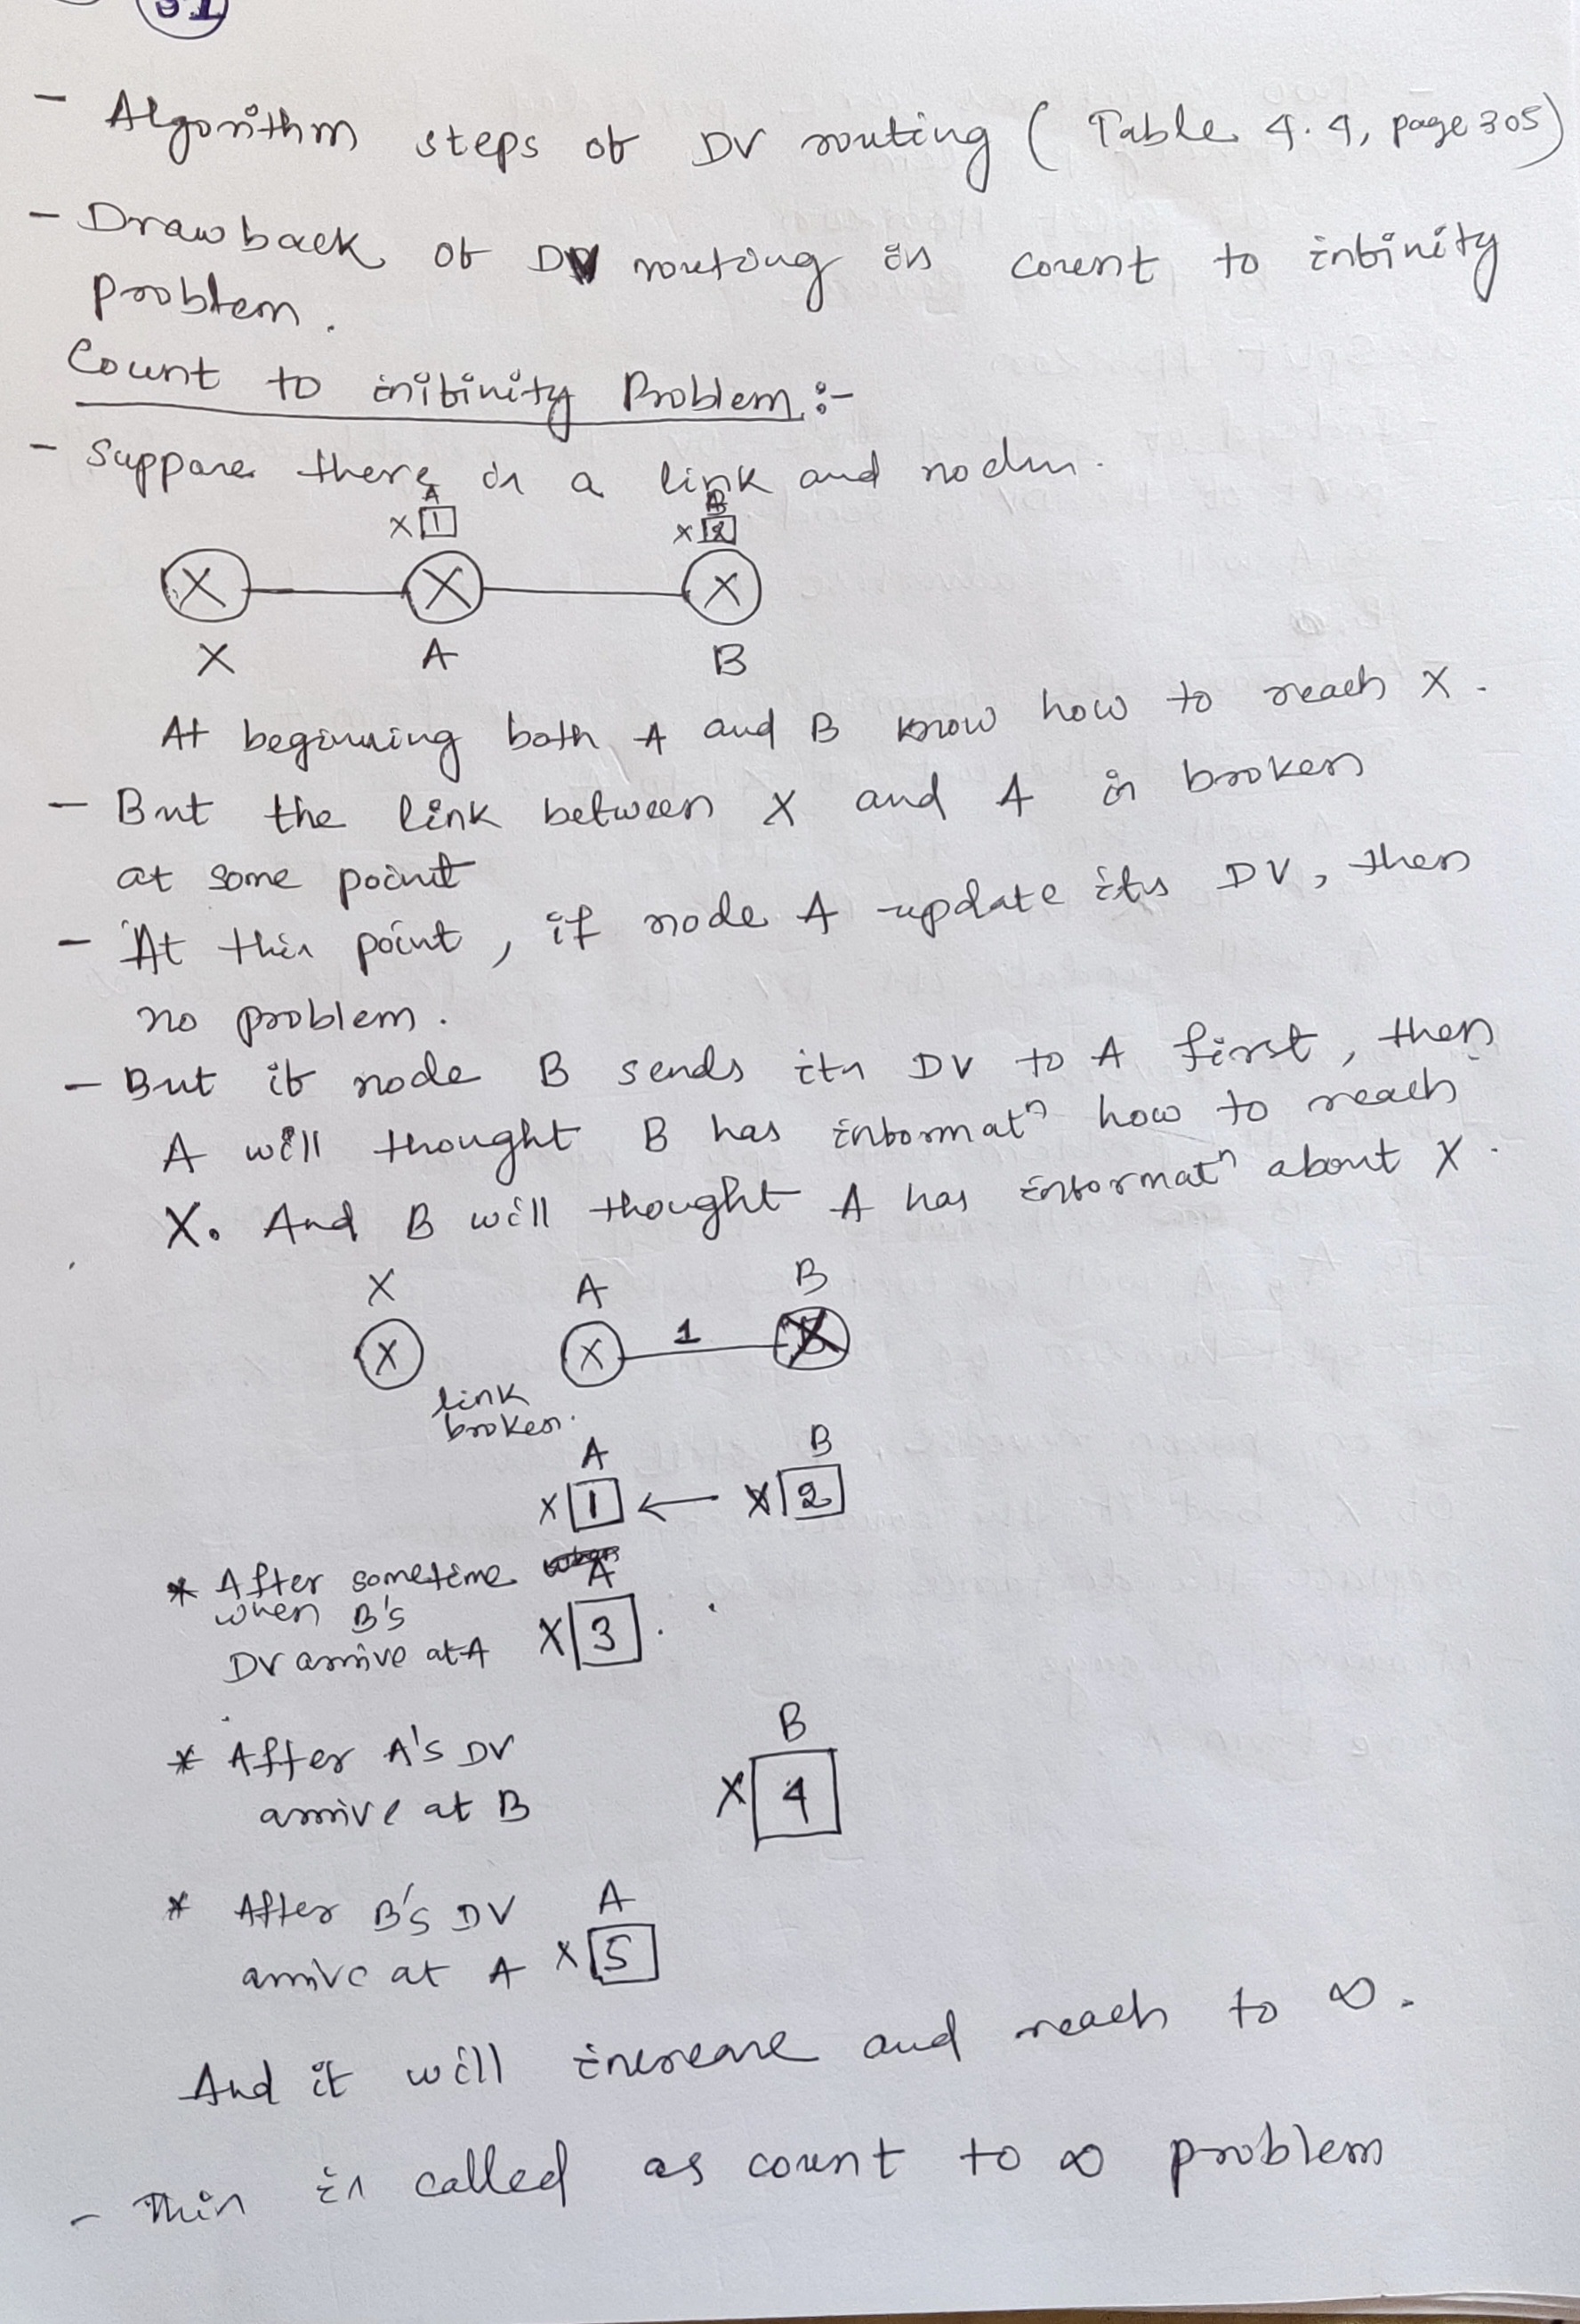 31
- Algorithm steps of DV routing ( Table 4.4, page 305)
- Drawback of DV routing is count to infinity
problem.
Count to infinity Problem :-
- Suppose there is a link and nodes.
A
X 1
B
X 2
X X X
X A B
At beginning both A and B know how to reach X.
- But the link between X and A is broken
at some point
- At this point, if node A update its DV, then
no problem.
- But if node B sends its DV to A first, then
A will thought B has informatⁿ how to reach
X. And B will thought A has informatⁿ about X.
X A B
X X 1 X
link
broken.
A B
X 1 ← X 2
* After sometime A
when B's
DV arrive at A X 3.
* After A's DV B
arrive at B X 4
* After B's DV A
arrive at A X 5
And it will increase and reach to ∞.
- This is called as count to ∞ problem